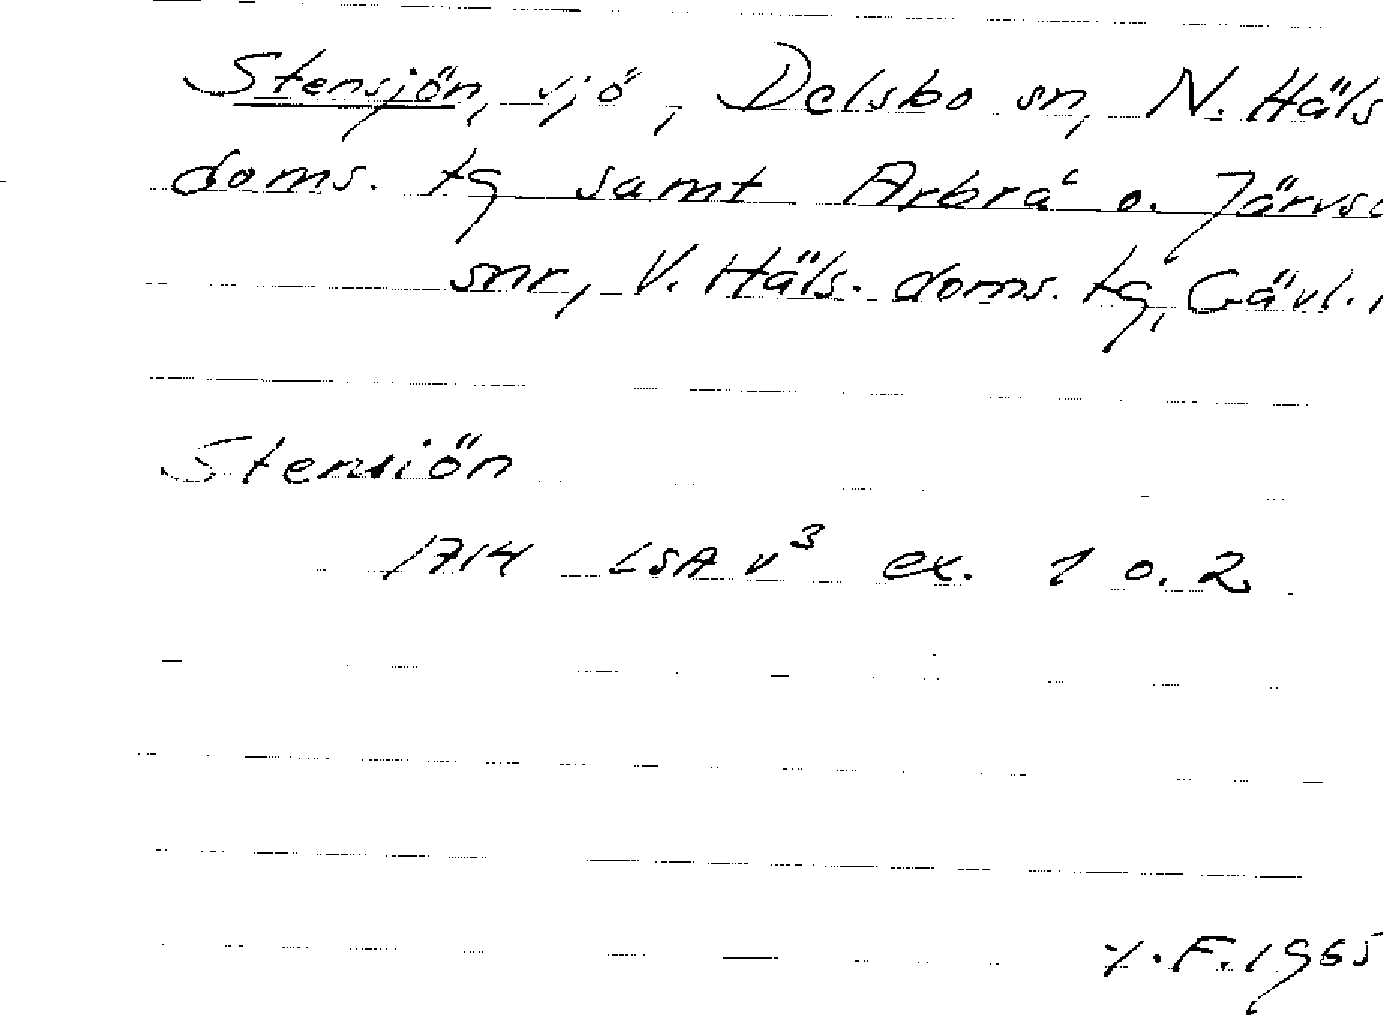 Stensjön, sjö, Delsbo sn, N. Häls
doms. tg samt Arbrå o. Järvsö
snr, V. Häls. doms. tg, Gävl.
Stensiön
1714 LSA v³ ex. 1 o. 2
F. 1965